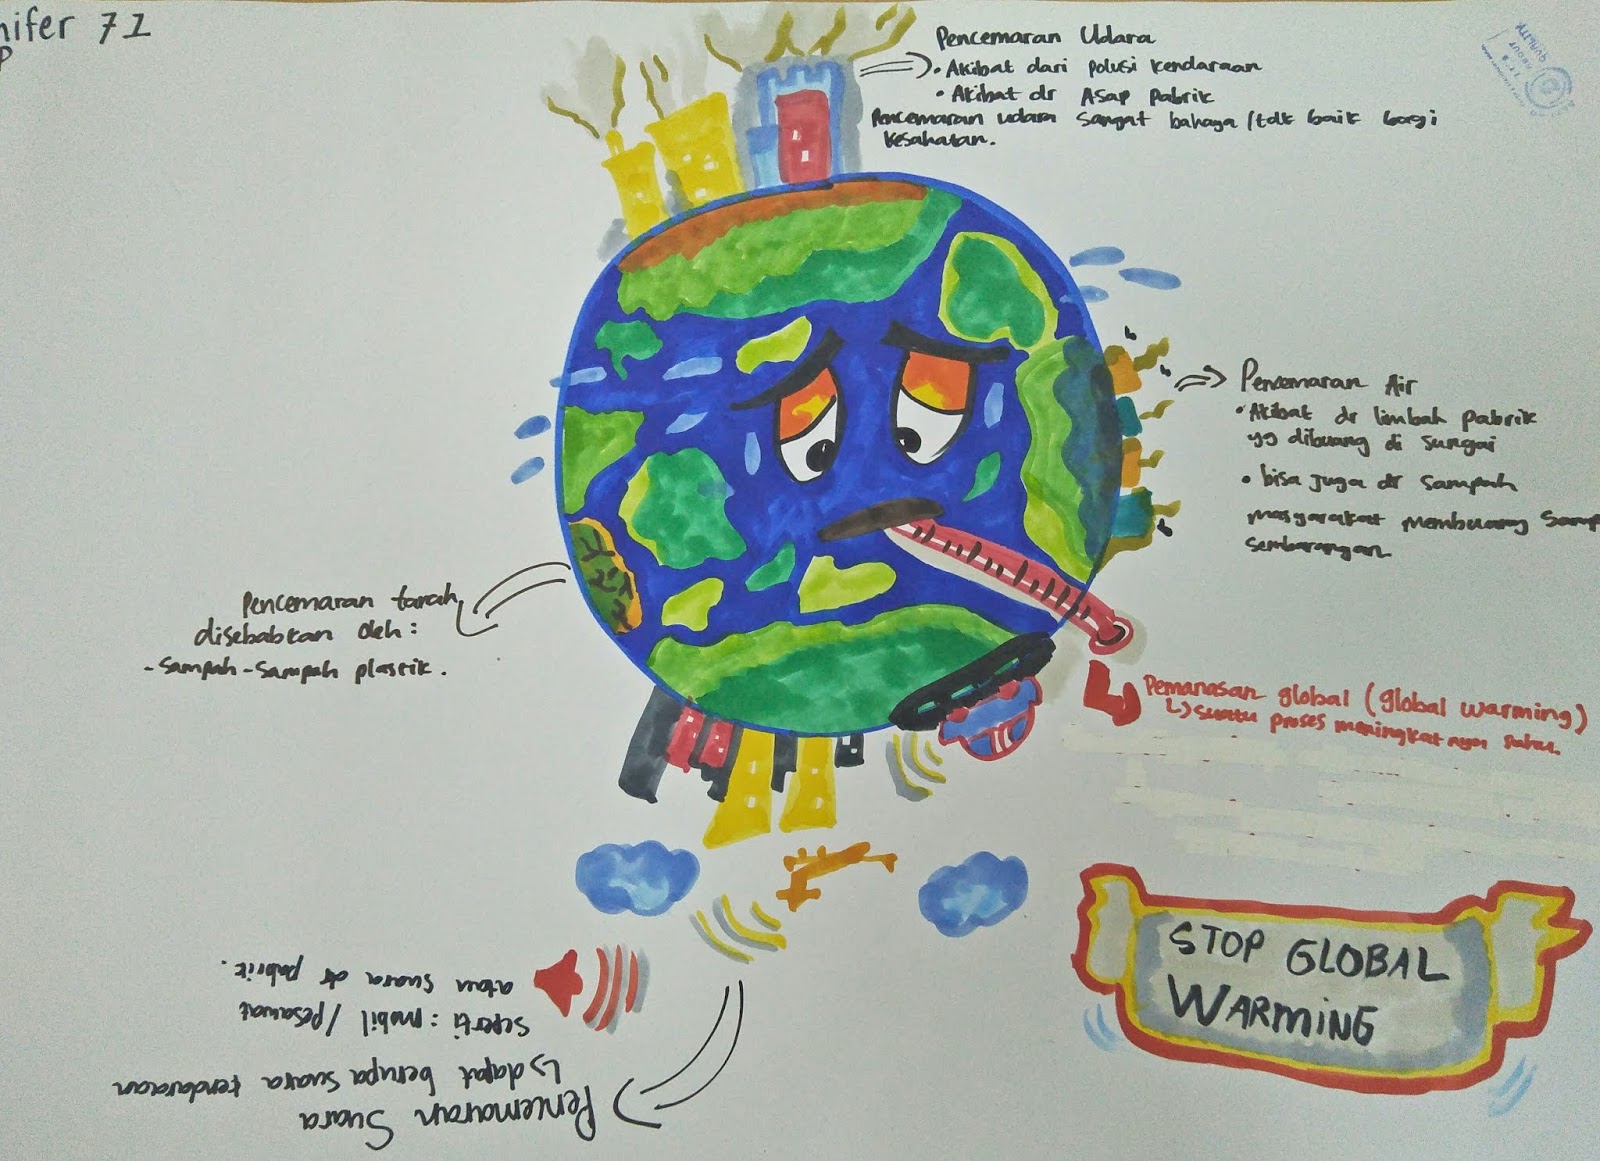 nifer 7I
P
Pencemaran Udara
• Akibat dari polusi kendaraan
• Akibat dr Asap pabrik
Pencemaran udara sangat bahaya/tdk baik bagi
kesahatan.
Pencemaran Air
• Akibat dr limbah pabrik
yg dibuang di sungai
• bisa juga dr sampah
masyarakat membuang samp
sembarangan
Pencemaran tanah
disebabkan oleh:
- sampah-sampah plastik.
Pemanasan global (global warming)
↳ suatu proses meningkat nya suhu.
STOP GLOBAL
WARMING
Pencemaran Suara
↳ dapat berupa suara kendaraan
seperti: mobil / pesawat
atau suara dr pabrik.